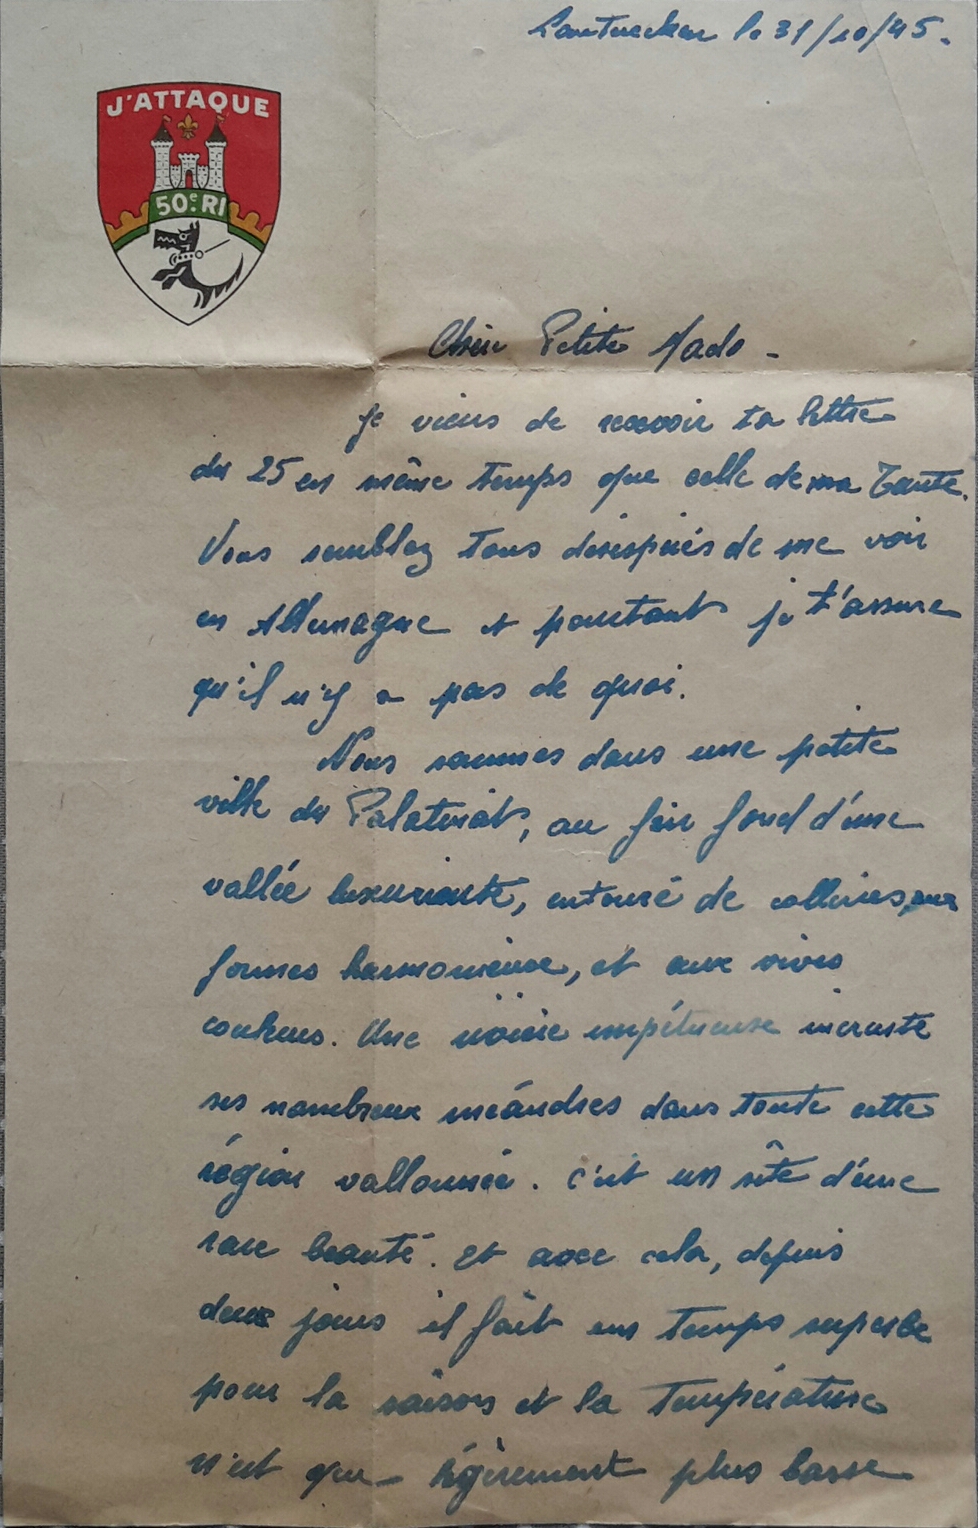 Lautrecken le 31/10/45.
J'ATTAQUE
50e RI
Chère Petite Mado -
Je viens de recevoir ta lettre
du 25 en même temps que celle de ma Tante.
Vous semblez tous désespérés de me voir
en Allemagne et pourtant je t'assure
qu'il n'y a pas de quoi.
Nous sommes dans une petite
ville du Palatinat, au fin fond d'une
vallée luxuriante, entouré de collines, aux
formes harmonieuse, et aux vives
couleurs. Une rivière impétueuse incruste
ses nombreux méandres dans toute cette
région vallonnée. C'est un sîte d'une
rare beauté. Et avec cela, depuis
deux jours il fait un temps superbe
pour la saison et la température
n'est que légèrement plus basse